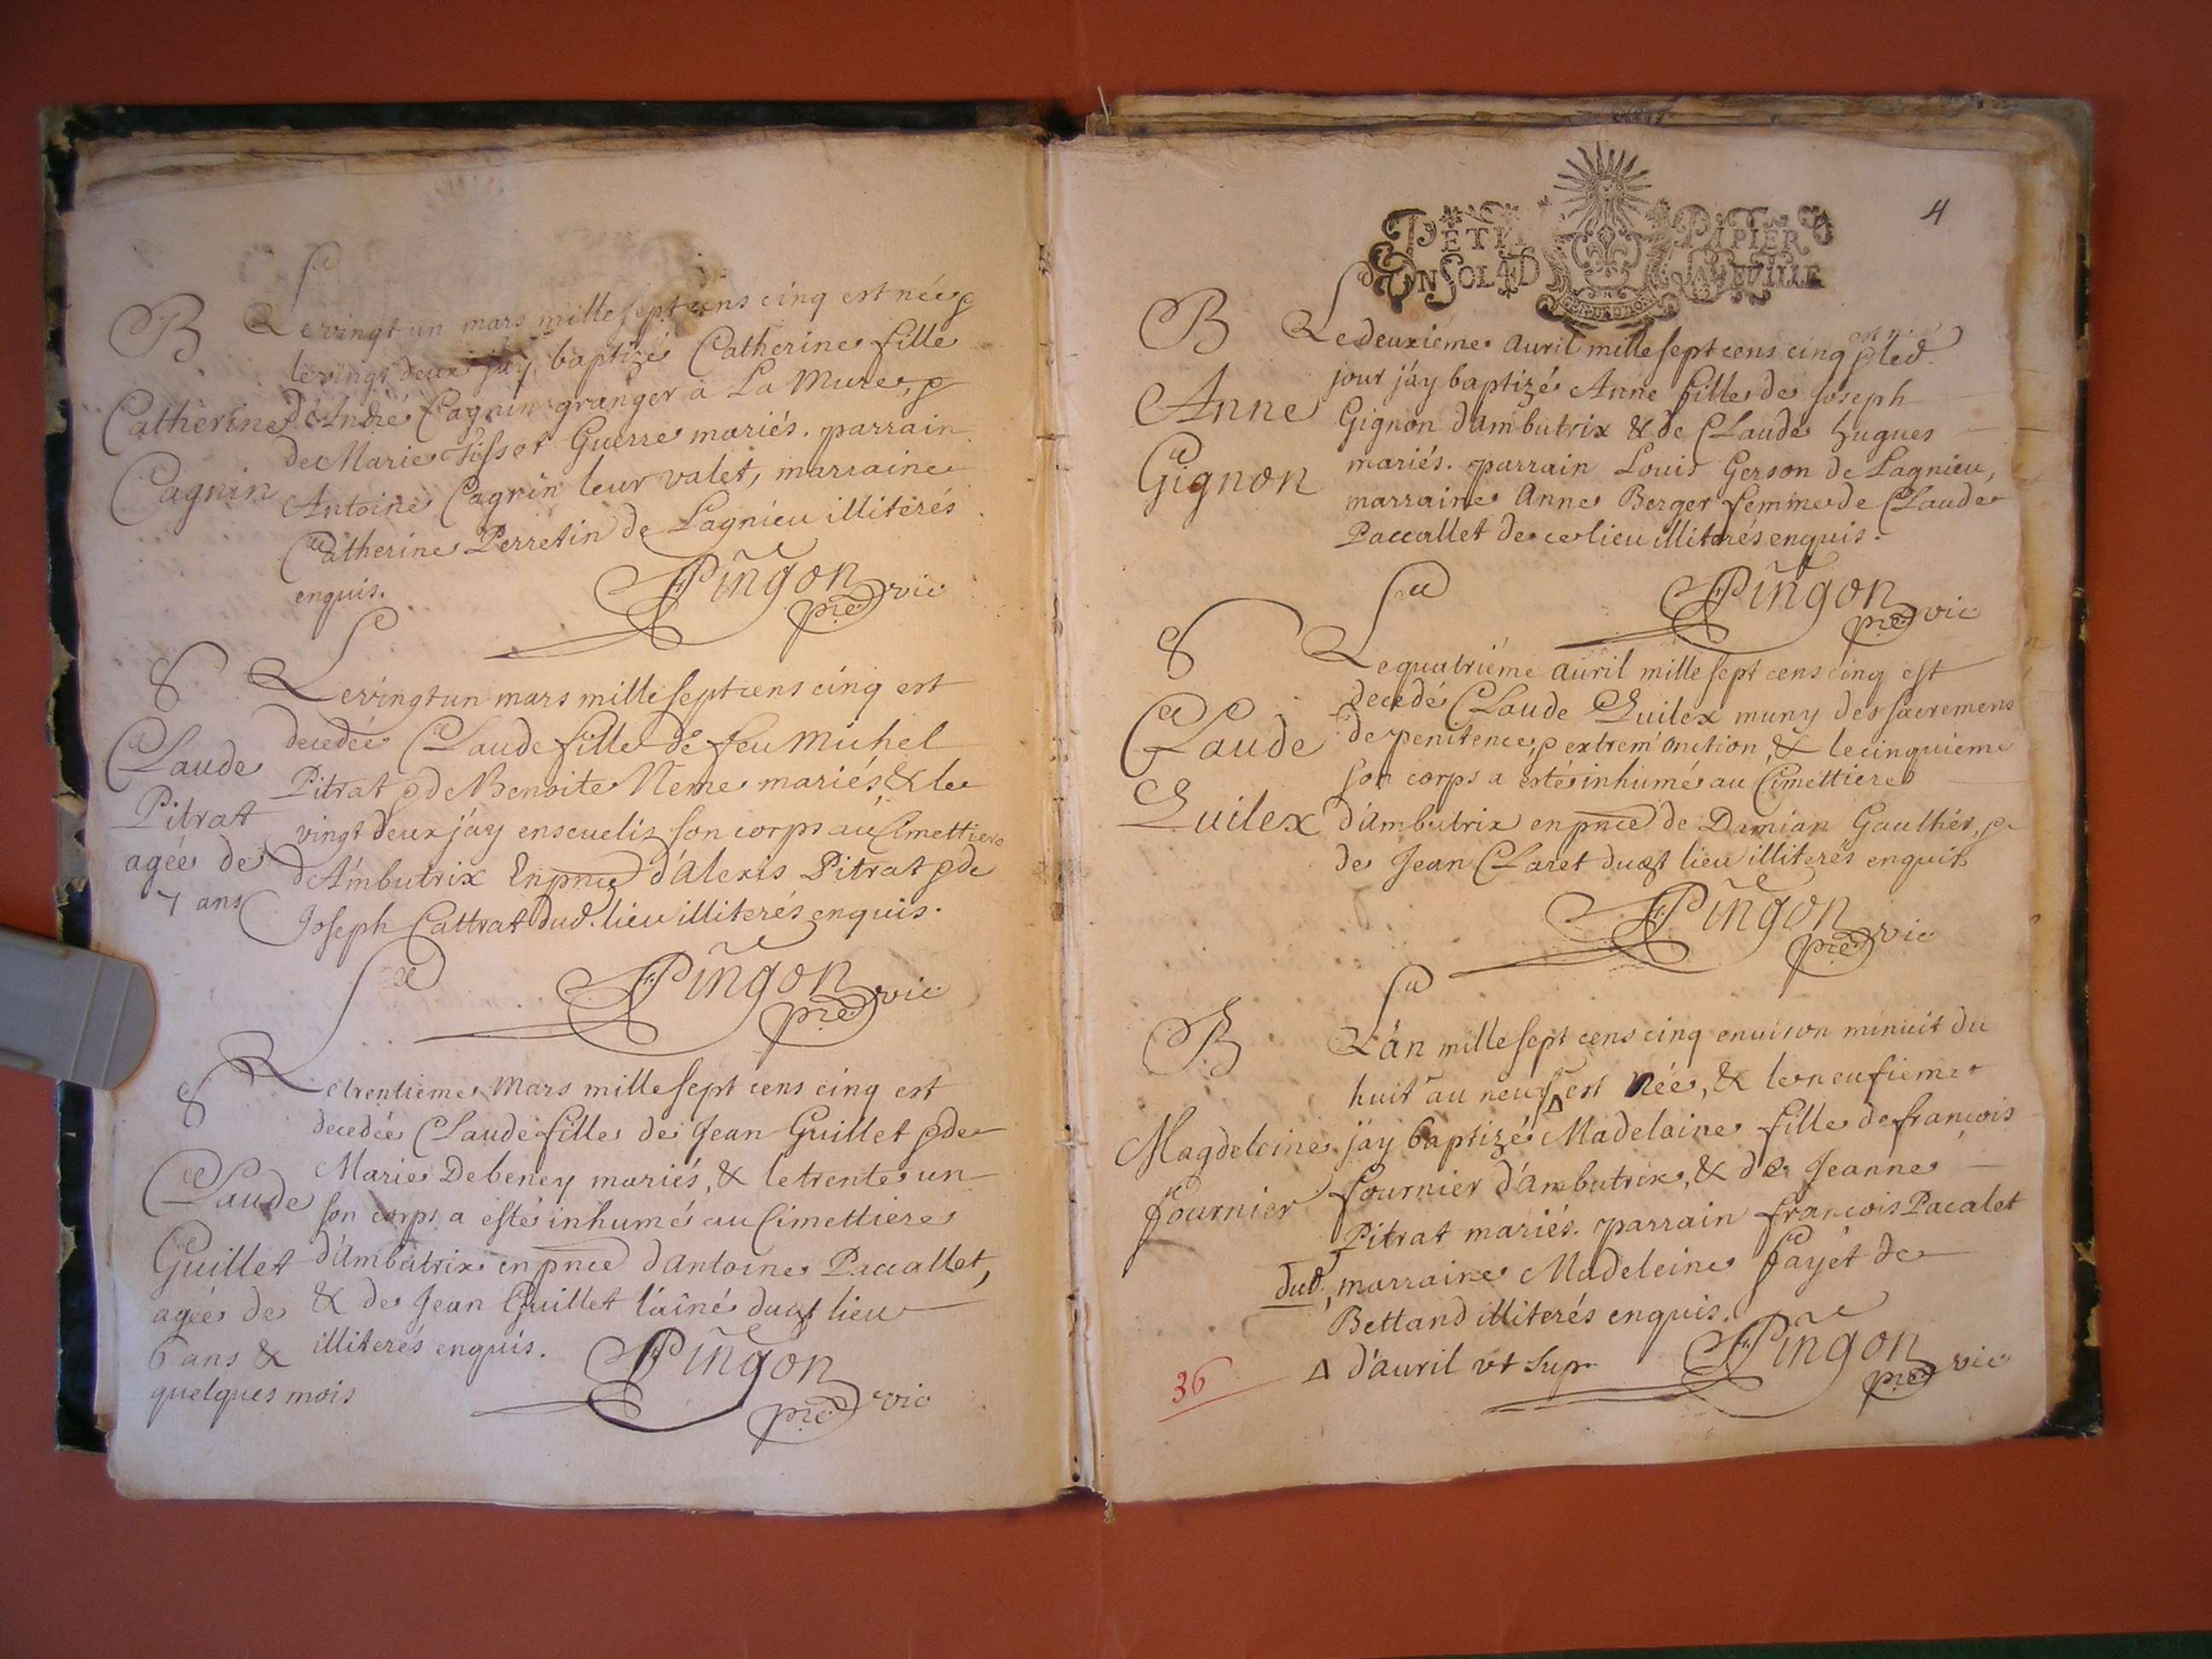 B
Catherine
Cagnin
Le vingt un mars mille sept cens cinq est née &
le vingt deux j'ay baptizé Catherine fille
d'André Cagnin granger a La Mure, &
de Marie Guerre mariés. parrain
Antoine Cagnin leur valet, marraine
Catherine Perretin de Lagnieu illiterés
enquis.
Pingon
pre vic
S
Claude
Pitrat
agée de
7 ans
Le vingt un mars mille sept cens cinq est
decedée Claude fille de feu Michel
Pitrat & de Benoite Neme mariés, & le
vingt deux j'ay ensevelis son corps au Cimettiere
d'Ambutrix En pnce d'Alexis Pitrat & de
Joseph Cattrat dud. lieu illiterés enquis.
Pingon
pre vic
S
Claude
Guillet
agée de
6 ans &
quelques mois
Le trentieme Mars mille sept cens cinq est
decedée Claude fille de Jean Guillet & de
Marie Debeney mariés, & le trente un
son corps a esté inhumé au Cimettiere
d'Ambutrix en pnce d'antoine Paccallet,
& de Jean Guillet l'aîné dudt lieu
illiterés enquis.
Pingon
pre vic
4
PETIT PAPIER
UN SOL 4 D LA FEUILLE
B
Anne
Gignon
est née
Le deuxiéme auril mille sept cens cinq & led.
jour j'ay baptizé Anne fille de Joseph
Gignon d'ambutrix & de Claude hugues
mariés. parrain Louis Gerson de Lagnieu,
marraine Anne Berger femme de Claude
Paccallet de ce lieu illiterés enquis.
Pingon
pre vic
S
Claude
Luilex
Le quatriéme auril mille sept cens cinq est
decedé Claude Luilex muny des sacremens
de penitence, & extrem'onction, & le cinquieme
son corps a esté inhumé au Cimettiere
d'ambutrix en pnce de Damian Gaulthier, &
de Jean Claret dudt lieu illiterés enquis
Pingon
pre vic
B
Magdeleine
fournier
L'an mille sept cens cinq enuiron minuit du
huit au neuf Δ est Née, & le neufieme
j'ay baptizé Madelaine fille de françois
fournier d'ambutrix, & de Jeanne
Pitrat mariés. parrain françois Pacalet
dud., marraine Madeleine Payét de
Bettand illiterés enquis.
Δ d'auril vt sup.
Pingon
pre vic
36